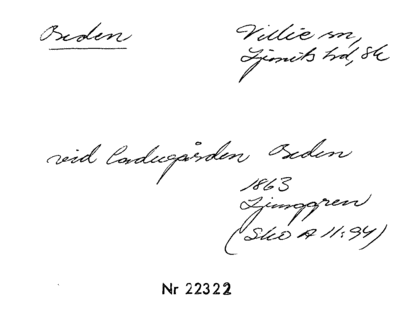 Boden
Villie sn,
Ljunits hd, Sk
vid Ladugården Boden
1863
Ljunggren
(Sko A 11:94)
Nr 22322